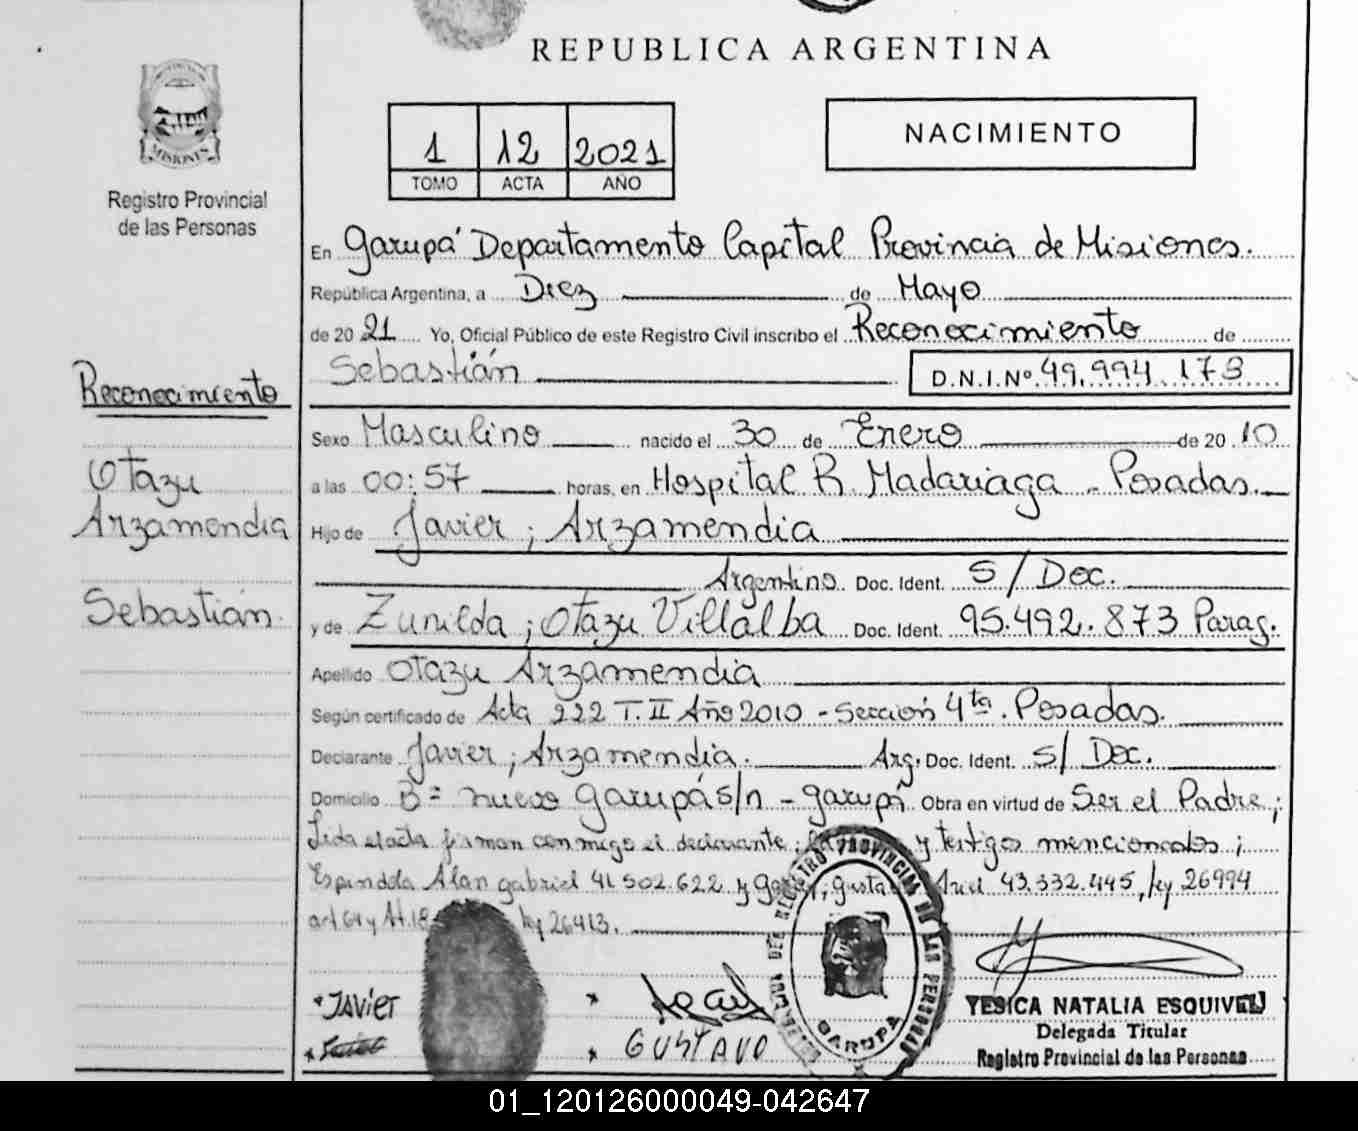 REPUBLICA ARGENTINA
MISIONES
Registro Provincial
de las Personas
1 12 2021
TOMO ACTA AÑO
NACIMIENTO
En Garupá Departamento Capital Provincia de Misiones.
República Argentina, a Diez de Mayo
de 20 21 Yo, Oficial Público de este Registro Civil inscribo el Reconocimiento de
Sebastián D.N.I.Nº 49.994.173
Reconocimiento
Otazu
Arzamendia
Sebastián
Sexo Masculino nacido el 30 de Enero de 20 10
a las 00:57 horas, en Hospital R. Madariaga - Posadas.
Hijo de Javier ; Arzamendia
Argentino Doc. Ident. S/Doc.
y de Zunilda ; Otazu Villalba Doc. Ident. 95.492.873 Parag.
Apellido Otazu Arzamendia
Según certificado de Acta 222 T.II Año 2010 - Sección 4ta. Posadas.
Declarante Javier ; Arzamendia. Arg. Doc. Ident. S/Doc.
Domicilio Bº nuevo Garupá s/n - Garupá Obra en virtud de Ser el Padre ;
Lida el acta firman conmigo el declarante ; y testigos mencionados ;
Espindola Alan gabriel 41.502.622 y ; Ariel 43.332.445, ley 26994
art 64 y ley 26413.
*JAVIER
GUSTAVO
REGISTRO PROVINCIAL DE LAS PERSONAS
GARUPA
YESICA NATALIA ESQUIVEL
Delegada Titular
Registro Provincial de las Personas
01_120126000049-042647